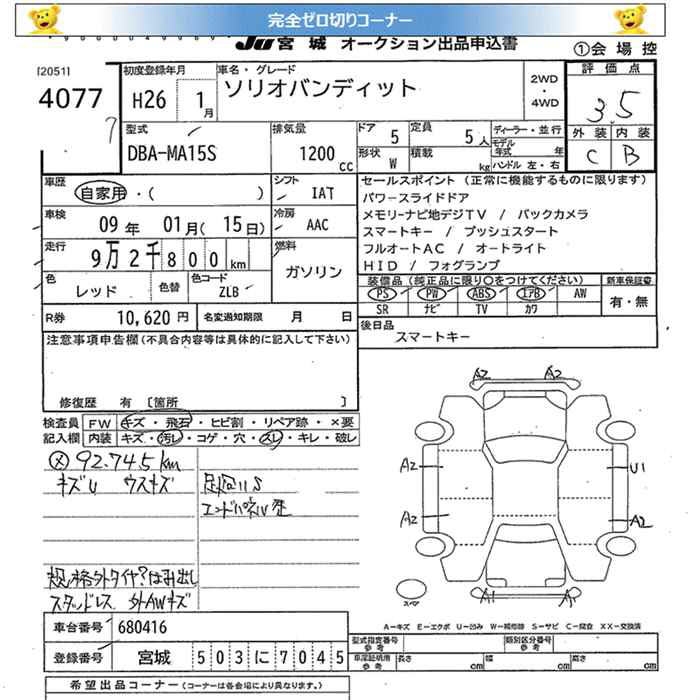 完全ゼロ切りコーナー
Ju 宮城 オークション出品申込書
①会場控
[2051]
4077
初度登録年月
H26 1月
車名・グレード
ソリオバンディット
2WD
・
4WD
評価点
3.5
外装 内装
C B
型式
DBA-MA15S
排気量
1200 cc
ドア 5
定員 5人
形状 W
積載 kg
ディーラー・並行
モデル年式 年
ハンドル 左・右
車歴
自家用・( )
シフト
IAT
車検
09年 01月(15日)
冷房
AAC
走行
9万2千800km
燃料
ガソリン
色
レッド
色替
色コード
ZLB
セールスポイント (正常に機能するものに限ります)
パワースライドドア
メモリーナビ地デジTV / バックカメラ
スマートキー / プッシュスタート
フルオートAC / オートライト
HID / フォグランプ
装備品 (純正品に限り○をつけてください)
新車保証書
PS PW ABS エアB AW
SR ナビ TV カワ
有・無
R券 10,620円
名変通知期限 月 日
後日品
スマートキー
注意事項申告欄(不具合内容等は具体的に記入して下さい)
修復歴 有 [箇所 ]
検査員
記入欄
FW キズ・飛石・ヒビ割・リペア跡・×要
内装 キズ・汚レ・コゲ・穴・スレ・キレ・破レ
92.745km
キズU ウスキズ
足回りS
エンドパネル歪
規格外タイヤ?は引出し
スタッドレス 外AWキズ
A2 A2
A2 U1
A2 A2
A1 A1
スペア
A=キズ E=エクボ U=凹み W=補修跡 S=サビ C=腐食 XX=交換済
車台番号 680416
登録番号 宮城 503に7045
型式指定番号
参考
類別区分番号
参考
車庫証明用
参考
長さ cm 幅 cm 高さ cm
希望出品コーナー (コーナーは各会場により異なります。)